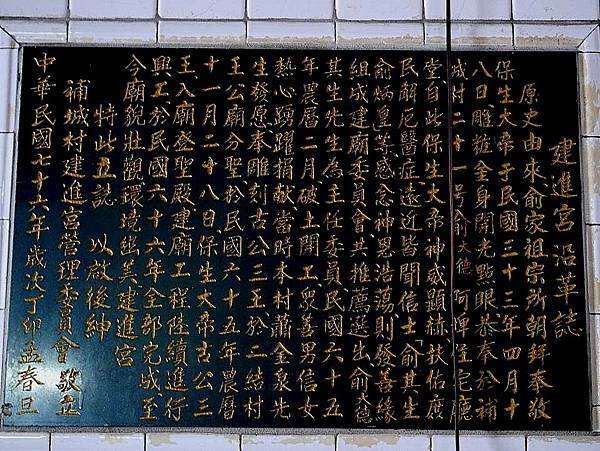 建進宮沿革誌
原史由來俞家祖宗所朝拜奉敬
保生大帝于民國三十三年四月十
八日雕粧全身開光點眼恭奉於補
城村二十一号俞大德 阿俾住宅廳
堂自此保生大帝神威顕赫扶佑庶
民解厄醫症遠近皆聞信士俞其生
俞炳皇等感念神恩浩蕩則發善緣
組成建廟委員會共推薦選出俞德
其生先生為主任委員民國六十五
年農曆二月破土開工眾善男信女
熱心踴躍捐献當時本村蕭金泉先
生發愿奉雕刻古公三王於二結村
王公廟分聖於民國六十五年農曆
十一月二十八日保生大帝古公三
王入廟登聖殿建廟工程陸續進行
興工於民國六十六年全部完成至
今廟貌壯觀環境幽美建進宮
特此立誌 以啟後紳
補城村建進宮管理委員會敬立
中華民國七十六年歲次丁卯孟春旦